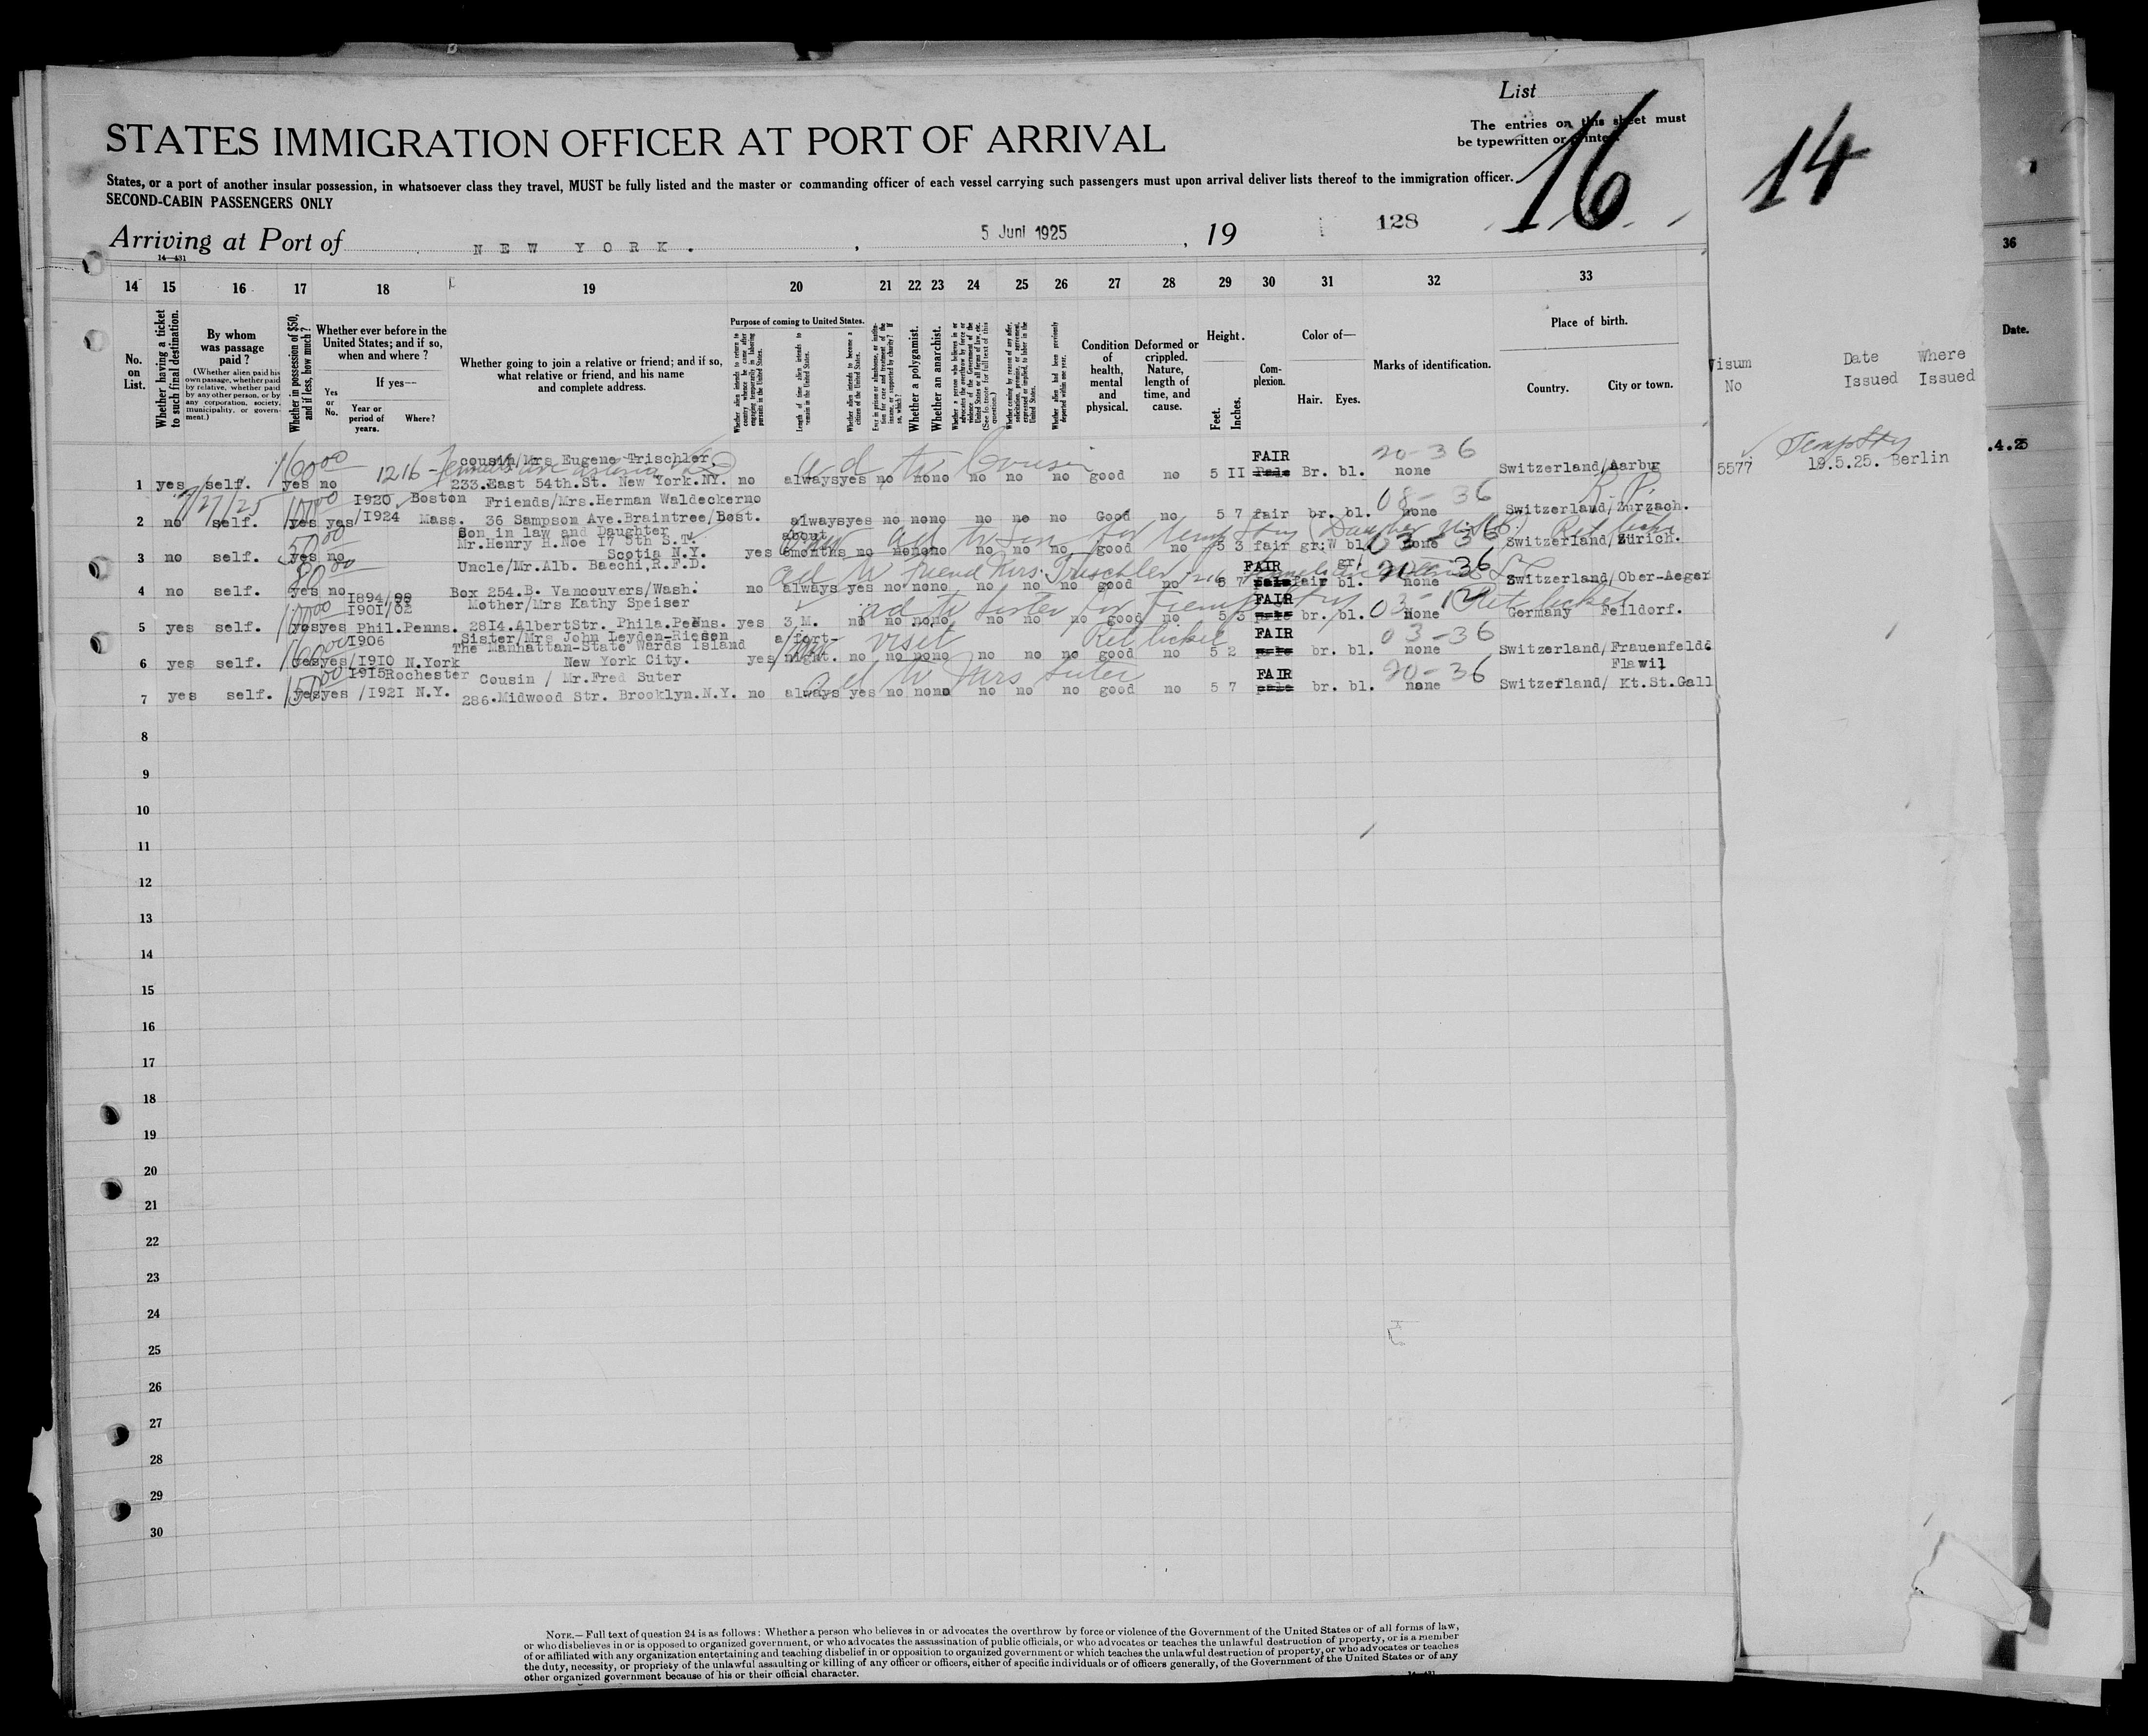 List
16
14
STATES IMMIGRATION OFFICER AT PORT OF ARRIVAL
The entries on this sheet must
be typewritten or printed.
States, or a port of another insular possession, in whatsoever class they travel, MUST be fully listed and the master or commanding officer of each vessel carrying such passengers must upon arrival deliver lists thereof to the immigration officer.
SECOND-CABIN PASSENGERS ONLY
Arriving at Port of NEW YORK. , 5 Juni 1925 , 19 128
14—431
14 15 16 17 18 19 20 21 22 23 24 25 26 27 28 29 30 31 32 33 36
No. on List.
Whether having a ticket to such final destination.
By whom was passage paid?
(Whether alien paid his own passage, whether paid by relative, whether paid by any other person, or by any corporation, society, municipality, or government.)
Whether in possession of $50, and if less, how much?
Whether ever before in the United States; and if so, when and where?
Yes or No.
If yes—
Year or period of years.
Where?
Whether going to join a relative or friend; and if so, what relative or friend, and his name and complete address.
Purpose of coming to United States.
Whether alien intends to return to country whence he came after engaging temporarily in laboring pursuits in the United States.
Length of time alien intends to remain in the United States.
Whether alien intends to become a citizen of the United States.
Whether a polygamist.
Whether an anarchist.
Condition of health, mental and physical.
Deformed or crippled. Nature, length of time, and cause.
Height.
Feet. Inches.
Complexion.
Color of—
Hair. Eyes.
Marks of identification.
Place of birth.
Country. City or town.
Visum No
Date Issued
Where Issued
Date.
cousin/Mrs Eugene Trischler FAIR 20-36
1 yes self. yes no 1216 233.East 54th.St. New York.NY. no always yes no no no no no no good no 5 11 Pale Br. bl. none Switzerland/Aarburg 5577 19.5.25. Berlin .4.25
ad to Cousin
7/27/25 100 00 1920 Boston Friends/Mrs.Herman Waldecker no 08-36 R.P.
2 no self. yes yes /1924 Mass. 36 Sampson Ave.Braintree/Bost. always yes no no no no no no Good no 5 7 fair br. bl. none Switzerland/Zurzach.
50 00 Son in law and Daughter about
3 no self. yes no Mr.Henry H.Noe 17 5th S.T. Scotia N.Y. yes 6months no no no no no no no good no 5 3 fair gr. bl. none Switzerland/Zürich.
80 00 Uncle/Mr.Alb. Baechi,R.F.D. ad to friend Mrs. Trischler 1216 FAIR 20-36
4 no self. yes no Box 254.B. Vancouvers/Wash. no always yes no no no no no no good no 5 7 pale fair bl. none Switzerland/Ober-Aeger
1894/98 1901/02 Mother/Mrs Kathy Speiser ad to sister for FAIR 03-12 Ret ticket
5 yes self. yes yes Phil.Penns. 2814.AlbertStr. Phila.Penns. yes 3 M. no no no no no no no good no 5 3 pale br. bl. None Germany Feildorf.
1906 Sister/Mrs John Leyden-Riesen a fort- visit Ret ticket FAIR 03-36
The Manhattan-State Wards Island
6 yes self. yes yes /1910 N.York New York City. yes night. no no no no no no no good no 5 2 pale br. bl. none Switzerland/Frauenfeld
1915 Rochester Cousin / Mr.Fred Suter ad to Mrs Suter FAIR 20-36 Flawil
7 yes self. yes yes /1921 N.Y. 286.Midwood Str. Brooklyn.N.Y. no always yes no no no no no no good no 5 7 pale br. bl. none Switzerland/ Kt.St.Gall
8
9
10
11
12
13
14
15
16
17
18
19
20
21
22
23
24
25
26
27
28
29
30
NOTE.—Full text of question 24 is as follows: Whether a person who believes in or advocates the overthrow by force or violence of the Government of the United States or of all forms of law,
or who disbelieves in or is opposed to organized government, or who advocates the assassination of public officials, or who advocates or teaches the unlawful destruction of property, or is a member
of or affiliated with any organization entertaining and teaching disbelief in or opposition to organized government or which teaches the unlawful destruction of property, or who advocates or teaches
the duty, necessity, or propriety of the unlawful assaulting or killing of any officer or officers, either of specific individuals or of officers generally, of the Government of the United States or of any
other organized government because of his or their official character.